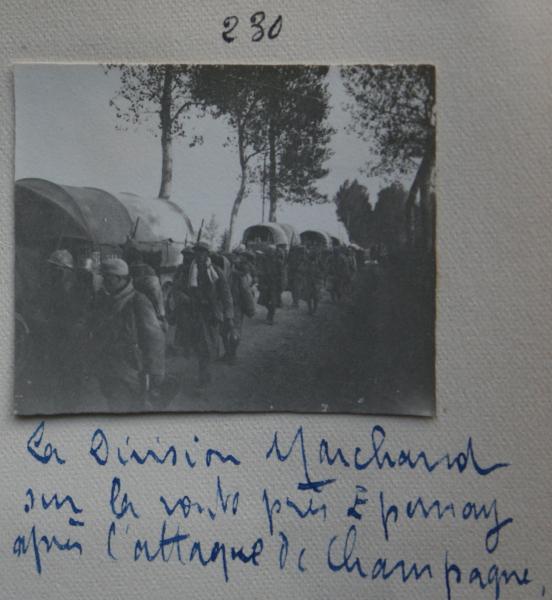 230
La Division Marchand
sur la route près Epernay
après l'attaque de Champagne,